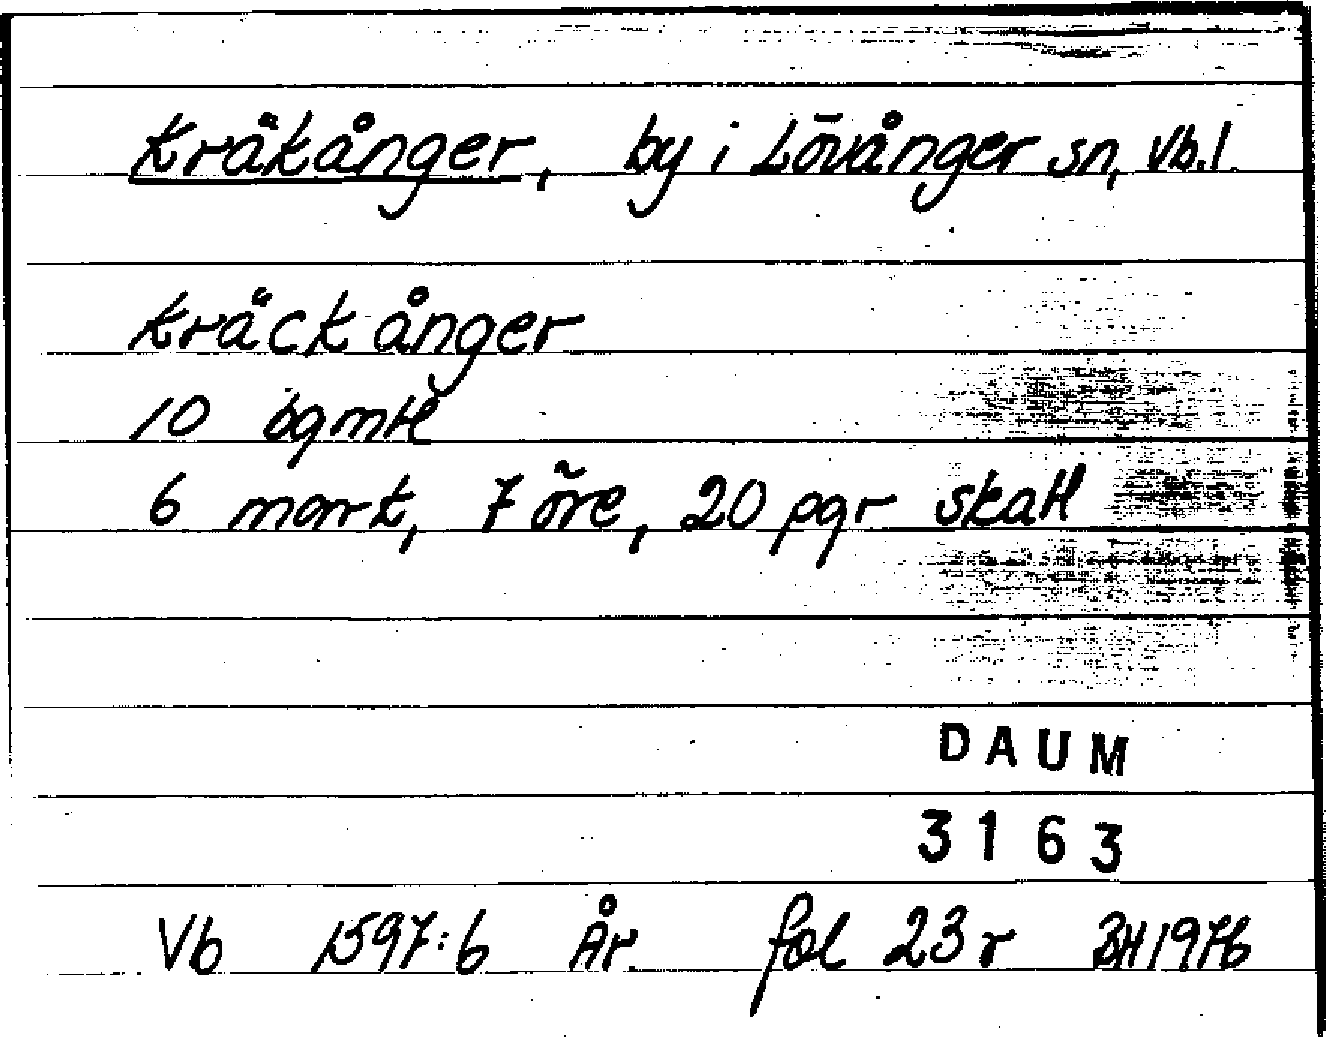 Kräkånger, by i Lövånger sn, Vb.l.
Kräckånger
10 bgmtl
6 mark, 7 öre, 20 pgr skatt
DAUM
3163
Vb 1597:6 År. fol 23r BH 1976